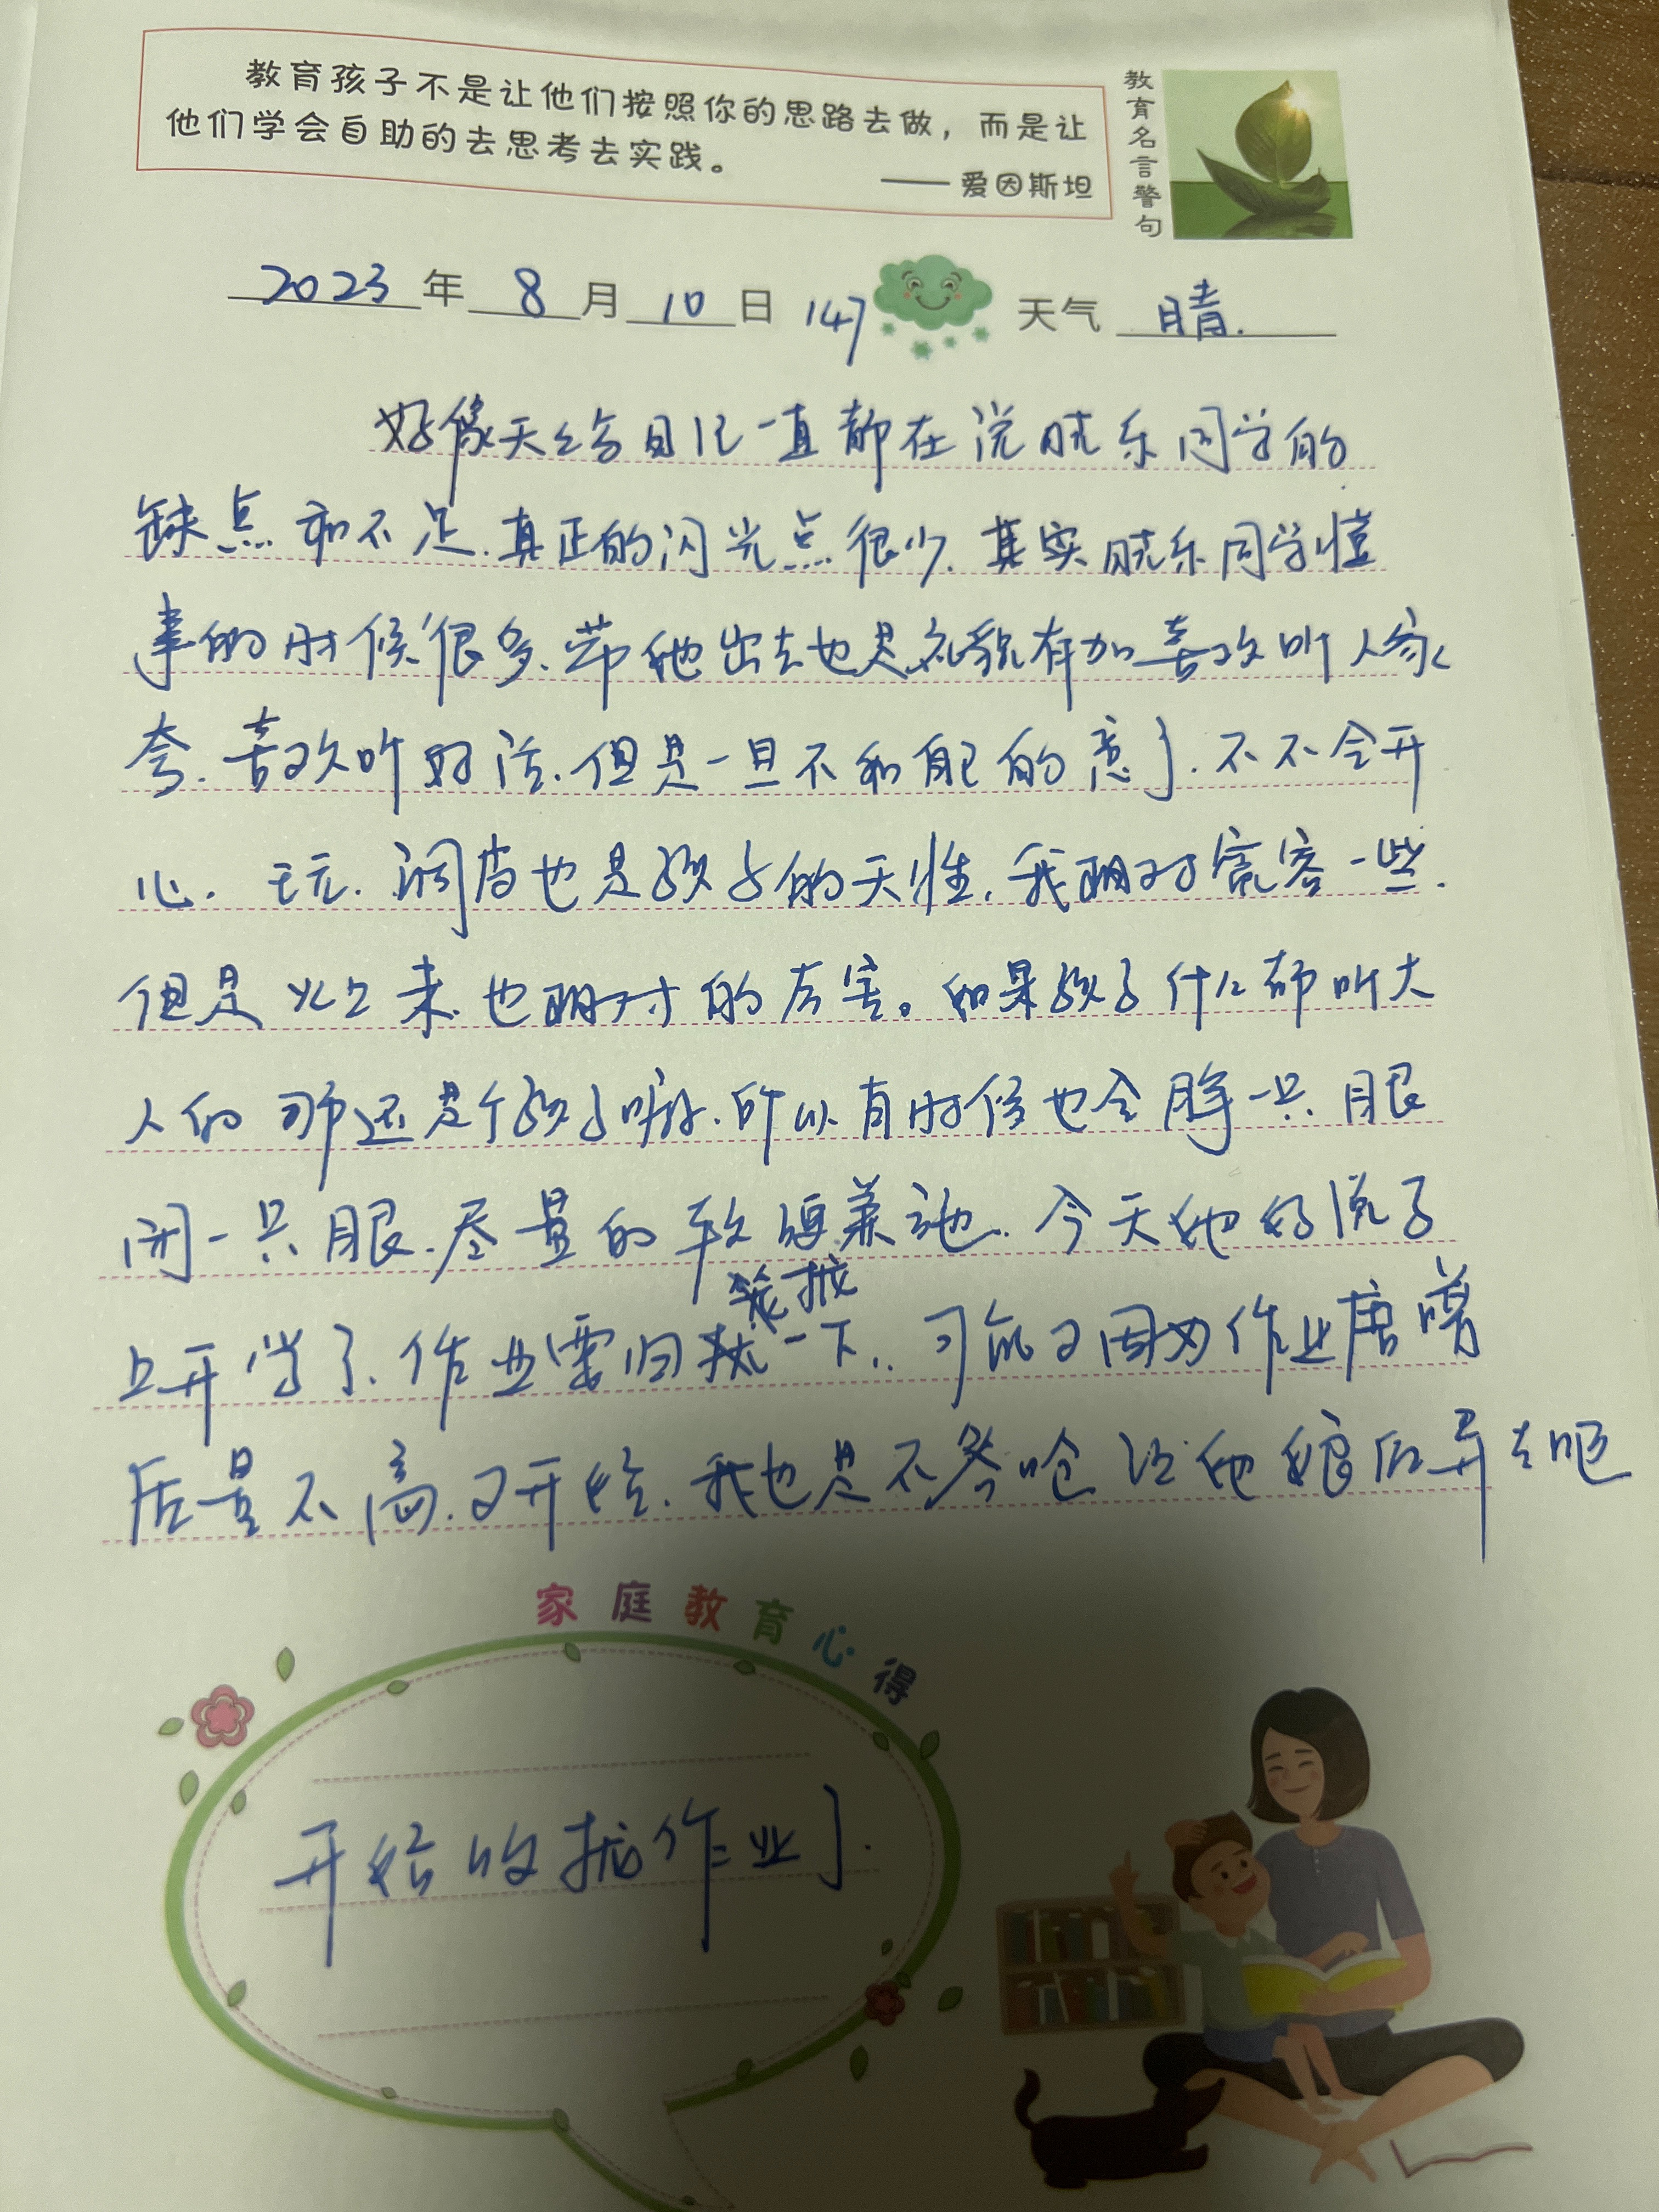 教育孩子不是让他们按照你的思路去做，而是让
他们学会自助的去思考去实践。
——爱因斯坦
教育名言警句
2023年8月10日 147 天气 晴.
好像天天给日记一直都在说晓东同学的
缺点和不足.真正的闪光点很少.其实晓东同学懂
事的时候很多.带他出去也是礼貌有加喜欢听人家
夸.喜欢听好话.但是一旦不和自己的意了.不会开
心.玩.调皮也是孩子的天性.我相对宽容一些.
但是也相对的厉害。如果孩子什么都听大
人的那还是个孩子嘛.所以有时候也会睁一只眼
闭一只眼.尽量的软硬兼施.今天他妈说了
开学了.作业要归拢一下..可能又因为作业
质量不高.又开始.我也是不参
开始收拢作业了.
家庭教育心得